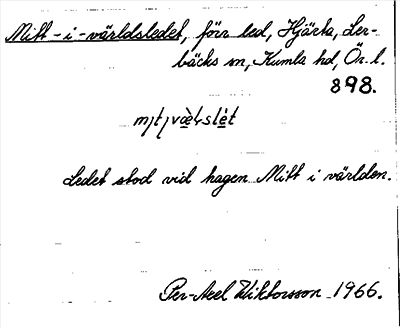 Mitt-i-världsledet, förr led, Hjärta, Ler-
bäcks sn, Kumla hd, Ör. l.
898.
Ledet stod vid hagen Mitt i världen.
Per-Axel Wiktorsson 1966.